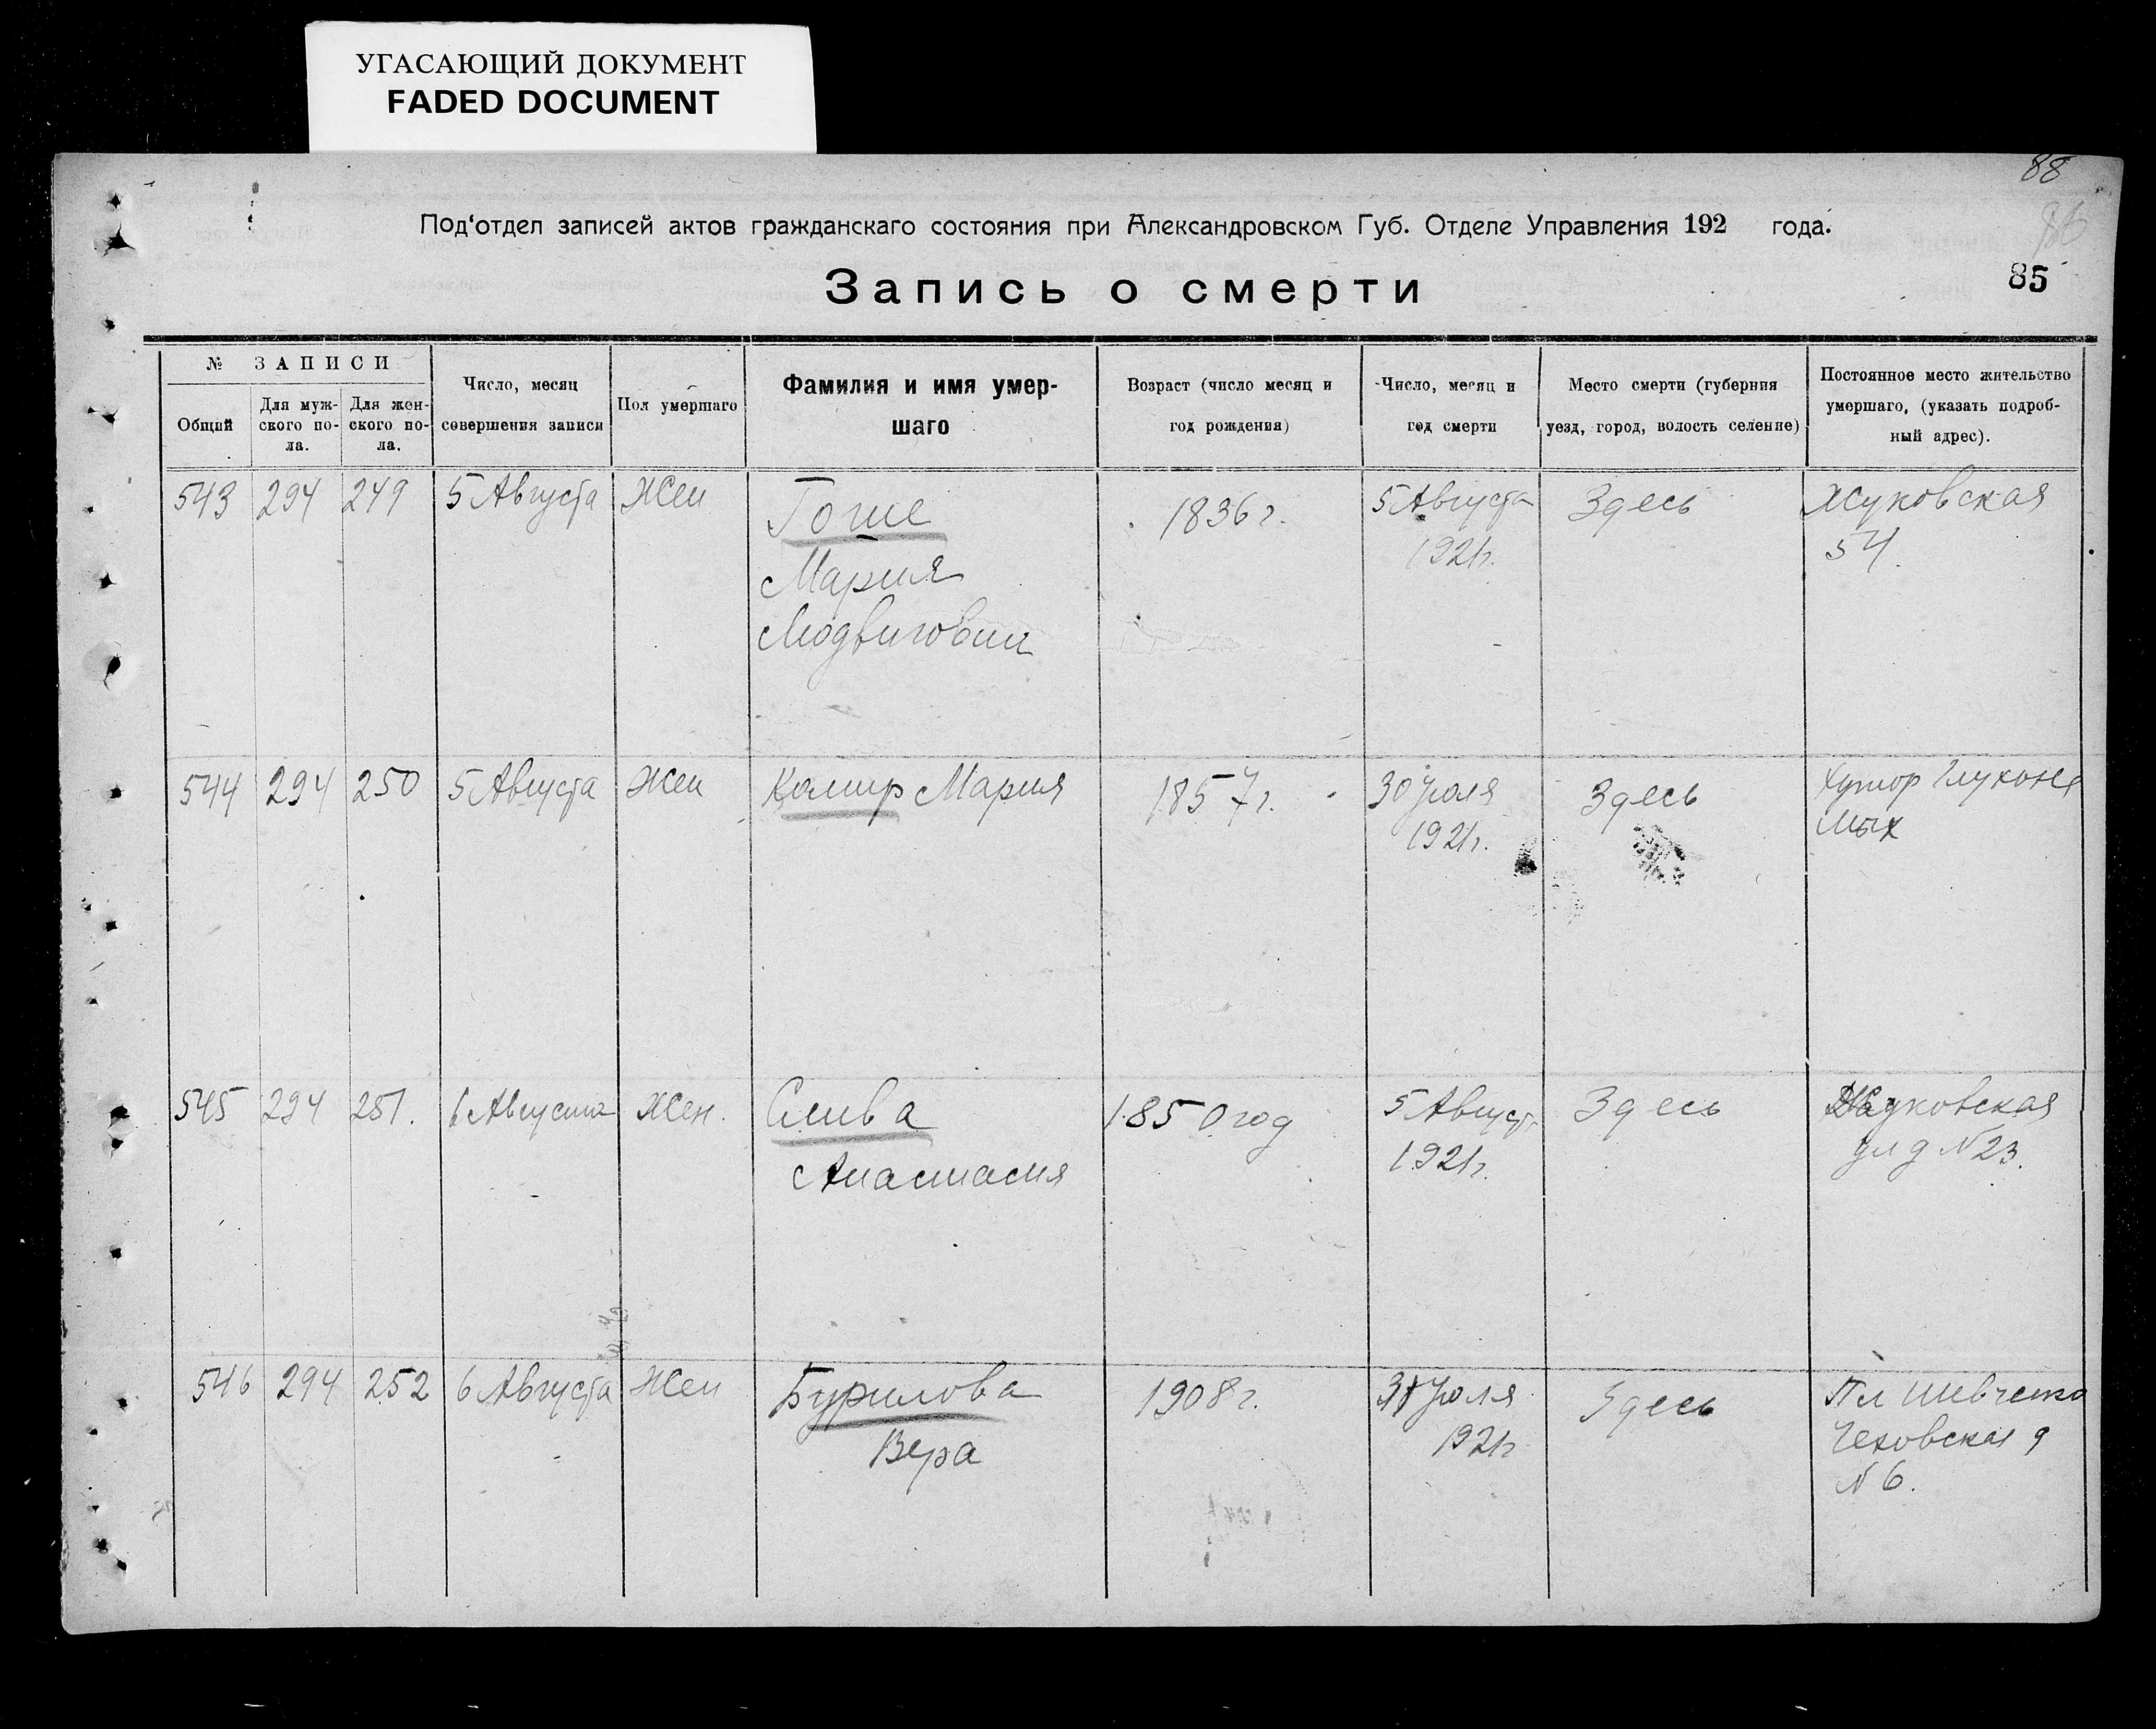 УГАСАЮЩИЙ ДОКУМЕНТ
FADED DOCUMENT
88
86
85
Под‘отдел записей актов гражданскаго состояния при Александровском Губ. Отделе Управления 192 года.
Запись о смерти
№ ЗАПИСИ
Общий
Для муж-
ского по-
ла.
Для жен-
ского по-
ла.
Число, месяц
совершения записи
Пол умершаго
Фамилия и имя умер-
шаго
Возраст (число месяц и
год рождения)
Число, месяц и
год смерти
Место смерти (губерния
уезд, город, волость селение)
Постоянное место жительство
умершаго, (указать подроб-
ный адрес).
543 294 249 5 Августа Жен
Гоше
Мария
Людвиговна
1836 г.
5 Августа
1921 г.
Здесь
Жуковская
54.
544 294 250 5 Августа Жен
Камир Мария
1857 г.
30 Июля
1921 г.
Здесь
Хутор
545 294 251. 6 Августа Жен.
Слива
Анастасия
1850 год
5 Август
1921 г.
Здесь
Жуковская
ул д № 23.
546 294 252 6 Августа Жен
Бурилова
Вера
1908 г.
31 Июля
1921 г
Здесь
Пл Шевченко
Чеховская д
№ 6.